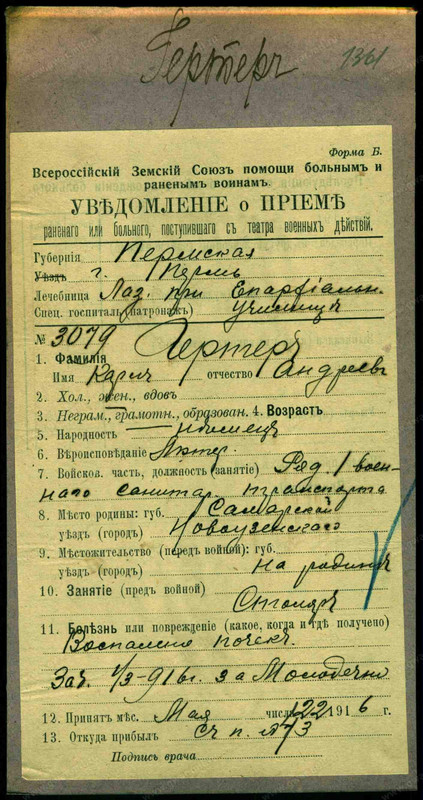 Гертеръ 1361
Форма Б.
Всероссійскій Земскій Союзъ помощи больнымъ и
раненымъ воинамъ.
УВѢДОМЛЕНІЕ о ПРІЕМѢ
раненаго или больного, поступившаго съ театра военныхъ дѣйствій.
Губернія Пермская
Уѣздъ г. Пермь
Лечебница Лаз. при Епархіальн.
Спец. госпиталь (патронажъ) Училищѣ
№ 3079
1. Фамилія Гертеръ
Имя Карлъ отчество Андреевъ
2. Хол., жен., вдов.
3. Неграм., грамотн., образован. 4. Возрастъ
5. Народность нѣмецъ
6. Вѣроисповѣданіе Лютер.
7. Войсков. часть, должность (занятіе) Ряд. 1 воен-
наго санитар. транспорта
8. Мѣсто родины: губ. Самарской
уѣздъ (городъ) Новоузенскаго
9. Мѣстожительство (предъ войной): губ.
уѣздъ (городъ) На родинѣ
10. Занятіе (предъ войной)
Столяръ
11. Болѣзнь или поврежденіе (какое, когда и гдѣ получено)
Воспаленіе почекъ.
Заб. 1/3-916г. за Молодечно
12. Принятъ мѣс. Мая числа 22 1916 г.
13. Откуда прибылъ Съ п. № 73
Подпись врача